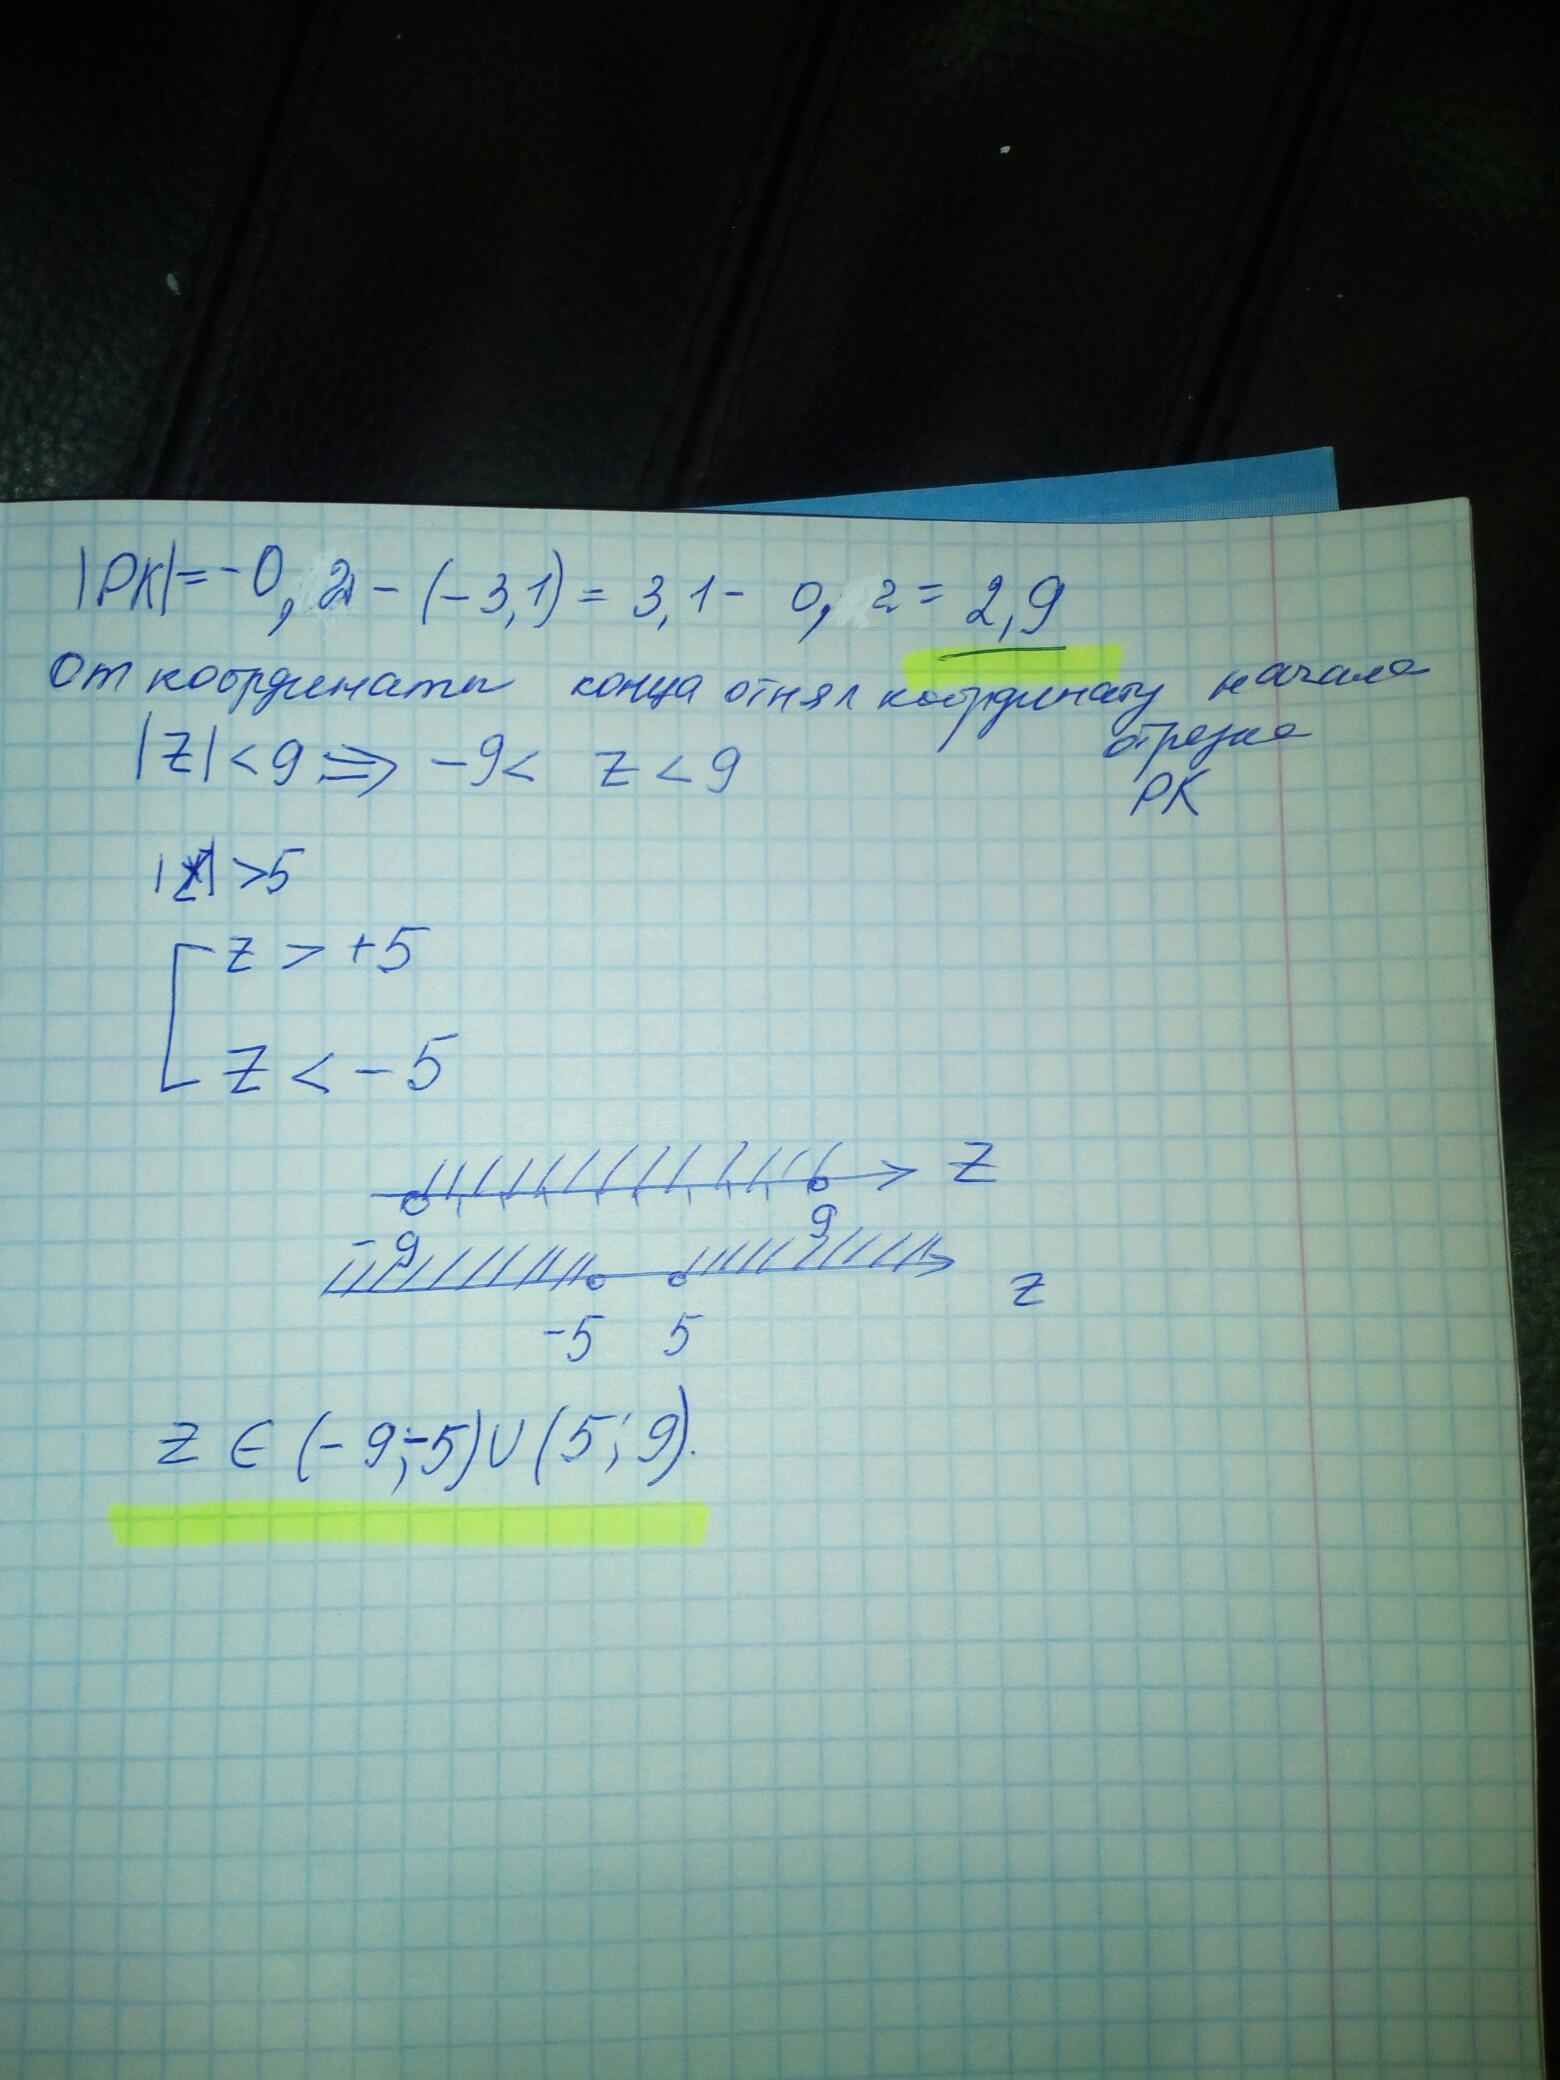 |PK|=-0,2-(-3,1)=3,1-0,2=2,9
От координаты конца отнял координату начала
отрезка
PK
|z|<9 => -9< z<9
|z|>5
z > +5
z < -5
z
-9
9
z
-5 5
z ∈ (-9;-5)∪(5;9).